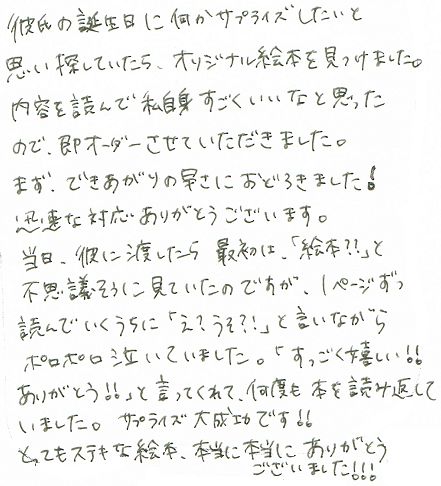 彼氏の誕生日に何かサプライズしたいと
思い探していたら、オリジナル絵本を見つけました。
内容を読んで私自身すごくいいなと思った
ので、即オーダーさせていただきました。
まず、できあがりの早さにおどろきました!
迅速な対応ありがとうございます。
当日、彼に渡したら最初は、「絵本??」と
不思議そうに見ていたのですが、1ページずつ
読んでいくうちに「え?うそ?!」と言いながら
ポロポロ泣いていました。「すっごく嬉しい!!
ありがとう!!」と言ってくれて、何度も本を読み返して
いました。サプライズ大成功です!!
とってもステキな絵本、本当に本当にありがとう
ございました!!!